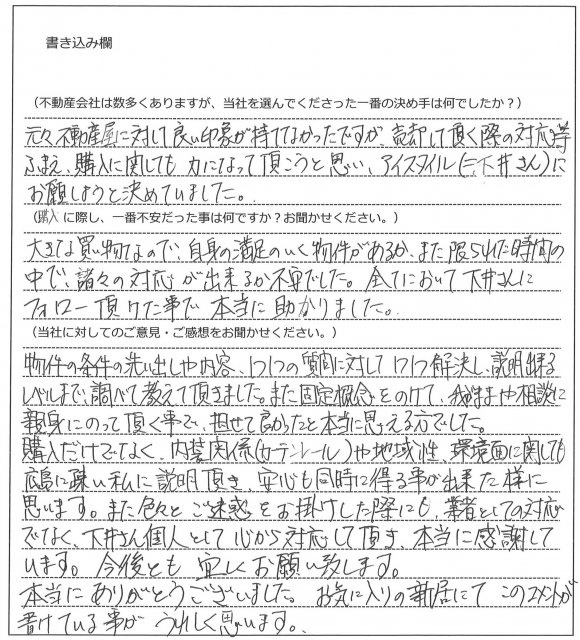 書き込み欄
(不動産会社は数多くありますが、当社を選んでくださった一番の決め手は何でしたか?)
元々不動産屋に対して良い印象が持てなかったですが、売却して頂く際の対応等
ふまえ、購入に関しても 力になって頂こうと思い、アイスタイル(=下井さん)に
お願しようと決めていました。
(購入 に際し、一番不安だった事は何ですか?お聞かせください。)
大きな買い物なので、自身の満足のいく物件があるか、また限られた時間の
中で、諸々の対応 が出来るか不安でした。全てにおいて下井さんに
フォロー頂けた事で 本当に助かりました。
(当社に対してのご意見・ご感想をお聞かせください。)
物件の条件の洗い出しや内容、1つ1つの質問に対して 1つ1つ解決し、説明出来る
レベルまで、調べて教えて頂きました。また固定概念をのけて、我儘や相談に
親身にのって頂く事で、担せて良かったと本当に思える方でした。
購入だけでなく、内装関係(カーテンレール)や地域性、環境面に関しても
広島に疎い私に説明頂き、安心も同時に得る事が出来た様に
思います。また色々と ご迷惑をお掛けした際にも、業者としての対応
でなく、下井さん個人として 心から対応して頂き、本当に感謝して
います。今後とも 宜しくお願い致します。
本当に ありがとうございました。お気に入りの新居にて このコメントが
書けている事が うれしく思います。